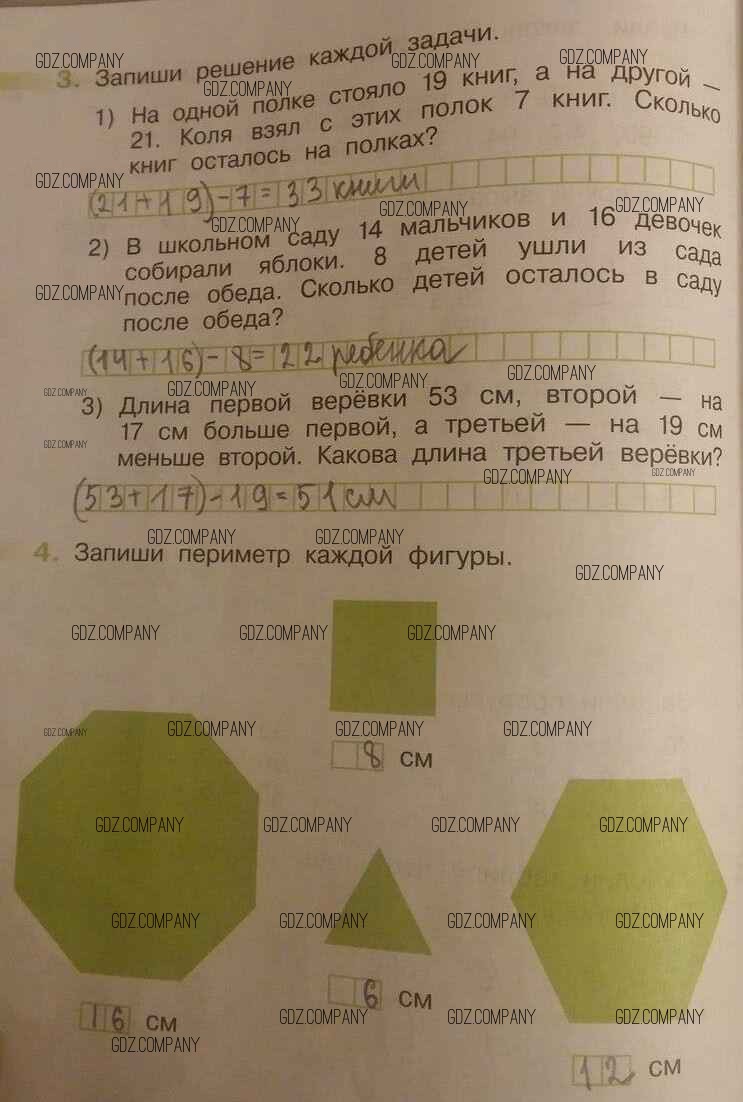 3. Запиши решение каждой задачи.
1) На одной полке стояло 19 книг, а на другой –
21. Коля взял с этих полок 7 книг. Сколько
книг осталось на полках?
(21+19)-7=33 книги
2) В школьном саду 14 мальчиков и 16 девочек
собирали яблоки. 8 детей ушли из сада
после обеда. Сколько детей осталось в саду
после обеда?
(14+16)-8=22 ребенка
3) Длина первой верёвки 53 см, второй — на
17 см больше первой, а третьей — на 19 см
меньше второй. Какова длина третьей верёвки?
(53+17)-19=51 см
4. Запиши периметр каждой фигуры.
8 см
6 см
16 см
12 см
GDZ.COMPANY